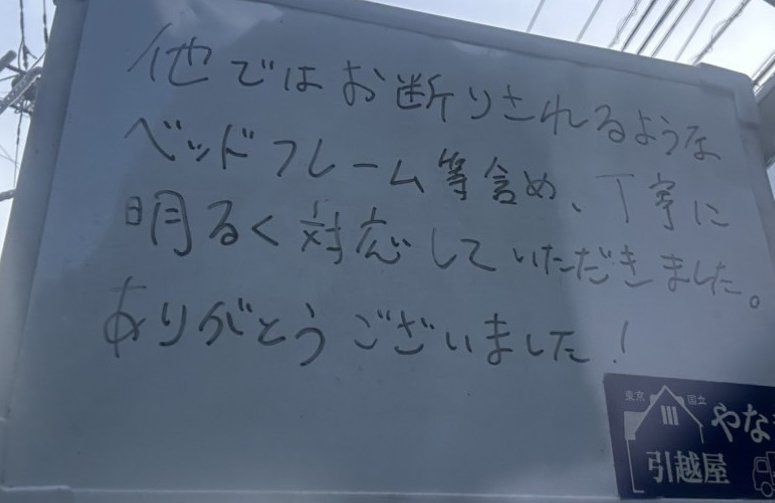 他ではお断りされるような
ベッドフレーム等含め、丁寧に
明るく対応していただきました。
ありがとうございました！
東京 国立
やな
引越屋